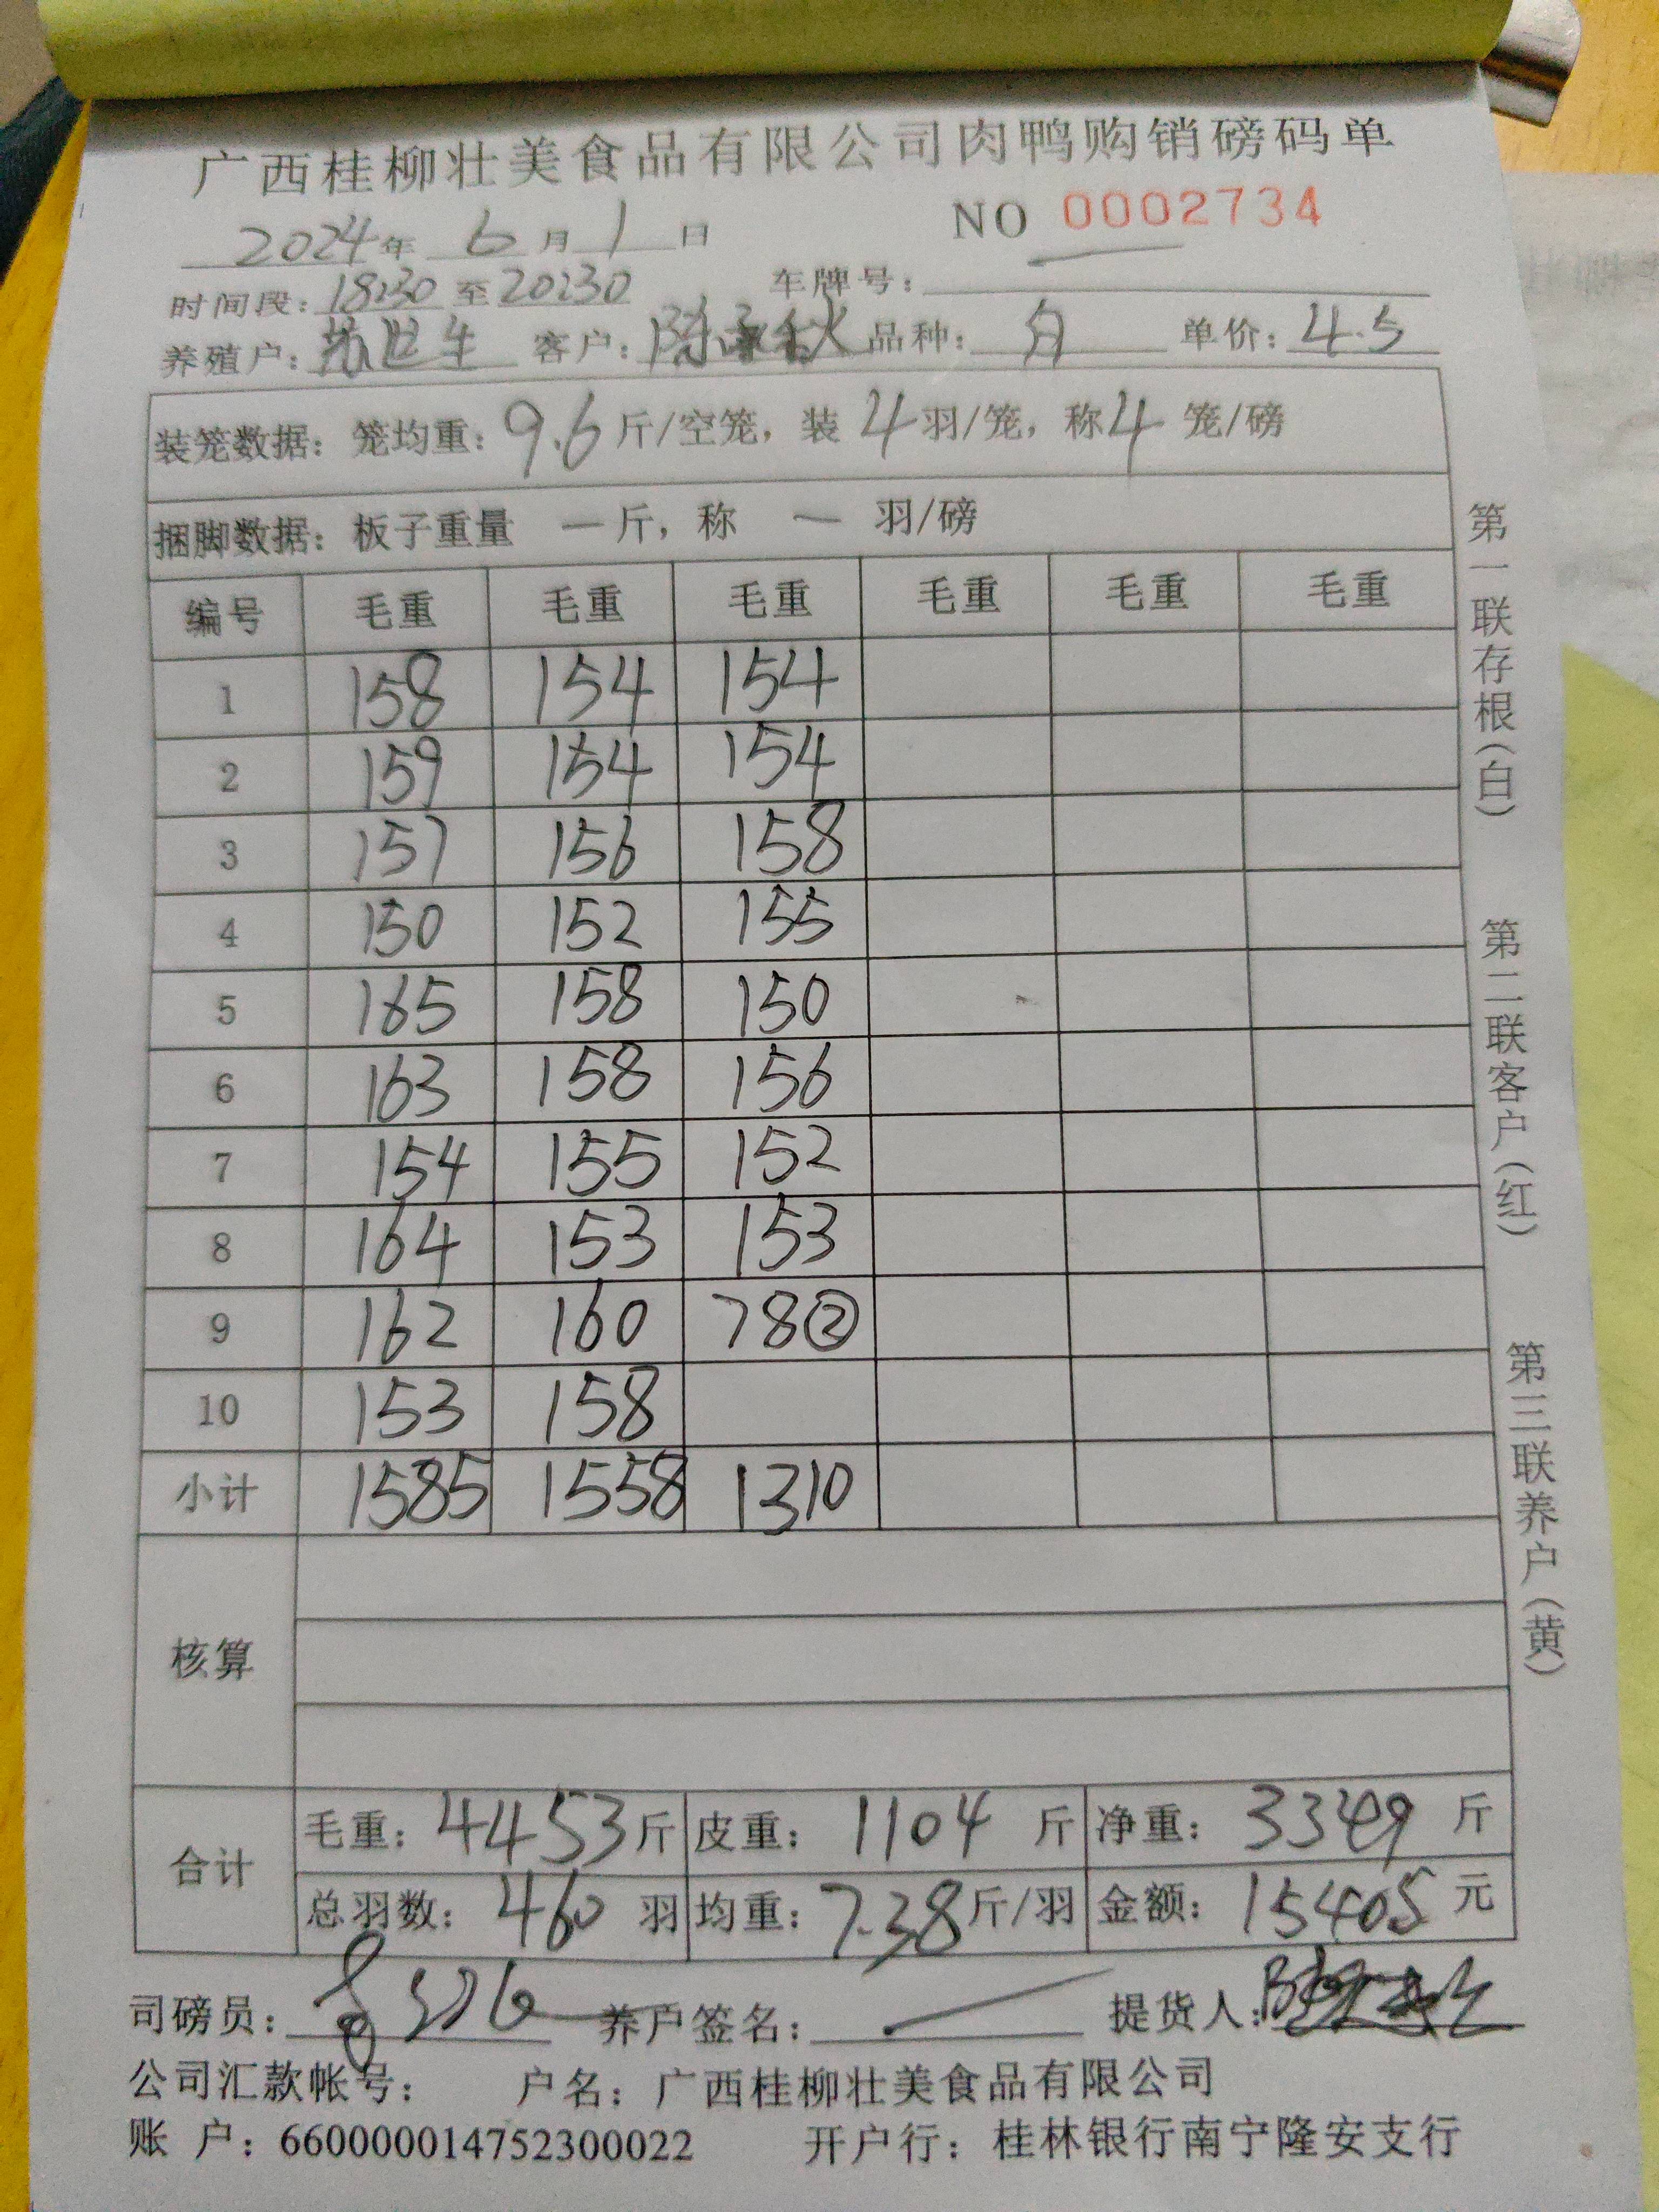 广西桂柳壮美食品有限公司肉鸭购销磅码单
2024年 6月 1日 NO 0002734
时间段：18:30 至 20:30 车牌号：
养殖户： 客户： 品种： 单价：4.5
装笼数据：笼均重：9.6斤/空笼，装 4羽/笼，称4 笼/磅
捆脚数据：板子重量 一斤，称 一 羽/磅
编号 毛重 毛重 毛重 毛重 毛重 毛重
1 158 154 154
2 159 154 154
3 157 156 158
4 150 152 155
5 165 158 150
6 163 158 156
7 154 155 152
8 164 153 153
9 162 160 78②
10 153 158
小计 1585 1558 1310
核算
合计 毛重：4453斤 皮重：1104斤 净重：3349斤
总羽数：460羽 均重：7.38斤/羽 金额：15405元
司磅员： 养户签名： 提货人：
公司汇款帐号： 户名：广西桂柳壮美食品有限公司
账 户：660000014752300022 开户行：桂林银行南宁隆安支行
第一联存根（白）
第二联客户（红）
第三联养户（黄）